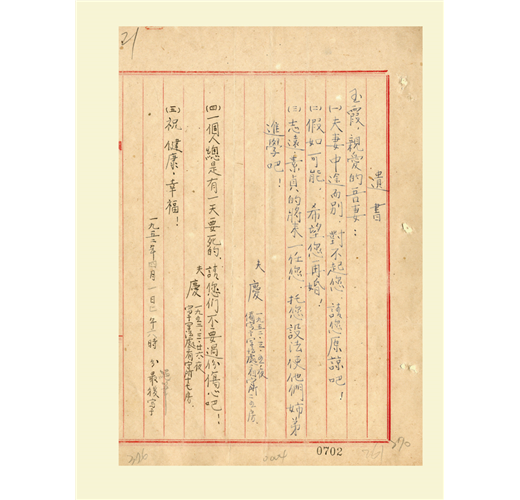 遺書
玉霞,親愛的吾妻:
(一)夫妻中途而別,對不起您,請您原諒吧!
(二)假如可能,希望您再婚!
(三)志遠素貞的將來一任您、托您設法使他們姊弟
進學吧!
夫 慶
(四)一個人總是有一天要死的,請您們不要過份傷心吧!
夫 慶
(五)祝 健康,幸福!
一九五二年四月一日 午六時 最後字
0702
270
21